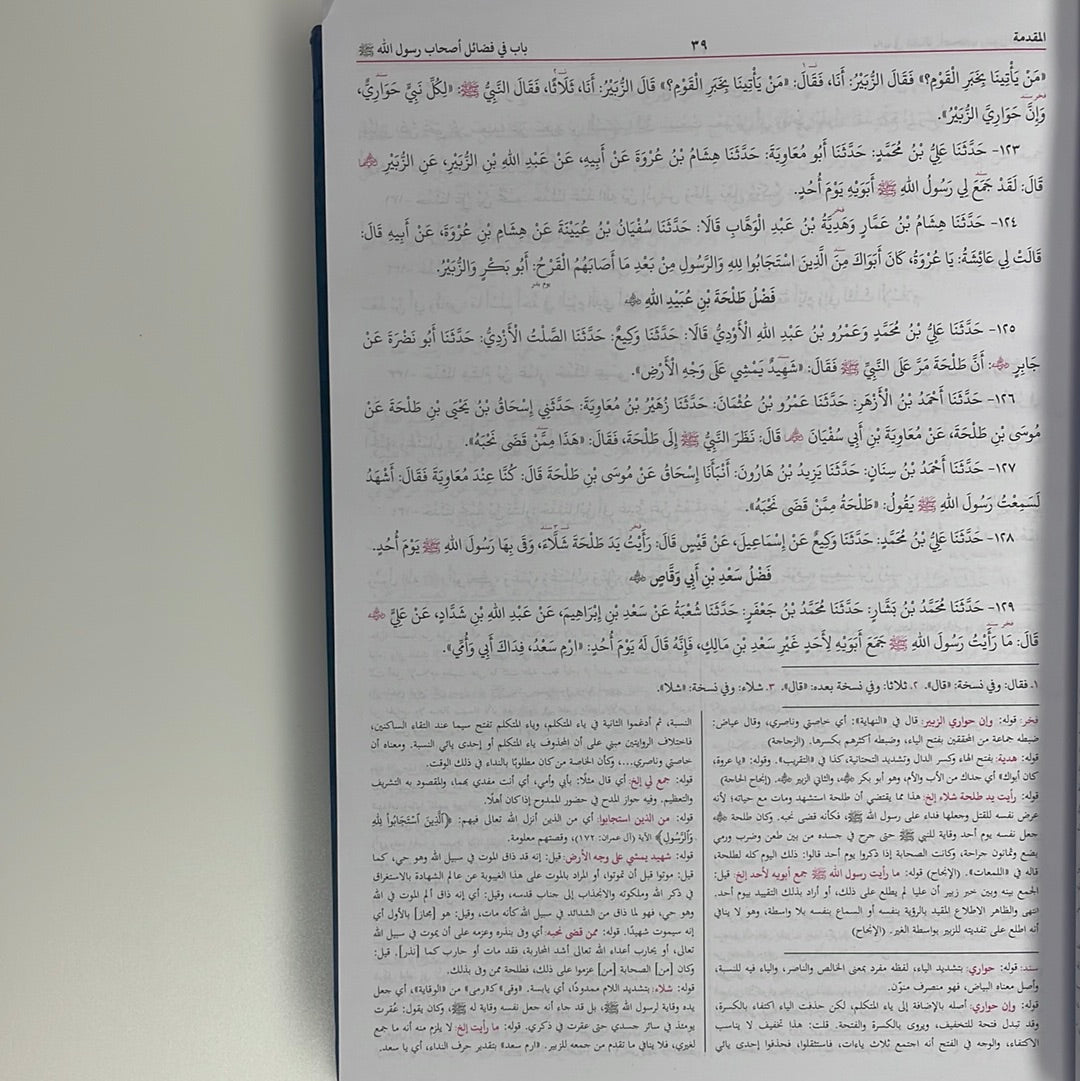 المقدمة
٣٩
باب في فضائل أصحاب رسول الله ﷺ
«مَنْ يَأْتِينَا بِخَبَرِ الْقَوْمِ؟» فَقَالَ الزُّبَيْرُ: أَنَا، فَقَالَ١: «مَنْ يَأْتِينَا بِخَبَرِ الْقَوْمِ؟» قَالَ الزُّبَيْرُ: أَنَا، ثَلَاثًا٢، فَقَالَ النَّبِيُّ ﷺ: «لِكُلِّ نَبِيٍّ حَوَارِيٌّ،
وَإِنَّ حَوَارِيَّ الزُّبَيْرُ».
١٢٣- حَدَّثَنَا عَلِيُّ بْنُ مُحَمَّدٍ: حَدَّثَنَا أَبُو مُعَاوِيَةَ: حَدَّثَنَا هِشَامُ بْنُ عُرْوَةَ عَنْ أَبِيهِ، عَنْ عَبْدِ اللهِ بْنِ الزُّبَيْرِ، عَنِ الزُّبَيْرِ
قَالَ: لَقَدْ جَمَعَ لِي رَسُولُ اللهِ ﷺ أَبَوَيْهِ يَوْمَ أُحُدٍ.
١٢٤- حَدَّثَنَا هِشَامُ بْنُ عَمَّارٍ وَهَدِيَّةُ بْنُ عَبْدِ الْوَهَّابِ قَالَا: حَدَّثَنَا سُفْيَانُ بْنُ عُيَيْنَةَ عَنْ هِشَامِ بْنِ عُرْوَةَ، عَنْ أَبِيهِ قَالَ:
قَالَتْ لِي عَائِشَةُ: يَا عُرْوَةُ، كَانَ أَبَوَاكَ مِنَ الَّذِينَ اسْتَجَابُوا لِلهِ وَالرَّسُولِ مِنْ بَعْدِ مَا أَصَابَهُمُ الْقَرْحُ: أَبُو بَكْرٍ وَالزُّبَيْرُ.
فَضْلُ طَلْحَةَ بْنِ عُبَيْدِ اللهِ
١٢٥- حَدَّثَنَا عَلِيُّ بْنُ مُحَمَّدٍ وَعَمْرُو بْنُ عَبْدِ اللهِ الْأَوْدِيُّ قَالَا: حَدَّثَنَا وَكِيعٌ: حَدَّثَنَا الصَّلْتُ الْأَزْدِيُّ: حَدَّثَنَا أَبُو نَضْرَةَ عَنْ
جَابِرٍ: أَنَّ طَلْحَةَ مَرَّ عَلَى النَّبِيِّ ﷺ فَقَالَ: «شَهِيدٌ يَمْشِي عَلَى وَجْهِ الْأَرْضِ».
١٢٦- حَدَّثَنَا أَحْمَدُ بْنُ الْأَزْهَرِ: حَدَّثَنَا عَمْرُو بْنُ عُثْمَانَ: حَدَّثَنَا زُهَيْرُ بْنُ مُعَاوِيَةَ: حَدَّثَنِي إِسْحَاقُ بْنُ يَحْيَى بْنِ طَلْحَةَ عَنْ
مُوسَى بْنِ طَلْحَةَ، عَنْ مُعَاوِيَةَ بْنِ أَبِي سُفْيَانَ قَالَ: نَظَرَ النَّبِيُّ ﷺ إِلَى طَلْحَةَ، فَقَالَ: «هَذَا مِمَّنْ قَضَى نَحْبَهُ».
١٢٧- حَدَّثَنَا أَحْمَدُ بْنُ سِنَانٍ: حَدَّثَنَا يَزِيدُ بْنُ هَارُونَ: أَنْبَأَنَا إِسْحَاقُ عَنْ مُوسَى بْنِ طَلْحَةَ قَالَ: كُنَّا عِنْدَ مُعَاوِيَةَ فَقَالَ: أَشْهَدُ
لَسَمِعْتُ رَسُولَ اللهِ ﷺ يَقُولُ: «طَلْحَةُ مِمَّنْ قَضَى نَحْبَهُ».
١٢٨- حَدَّثَنَا عَلِيُّ بْنُ مُحَمَّدٍ: حَدَّثَنَا وَكِيعٌ عَنْ إِسْمَاعِيلَ، عَنْ قَيْسٍ قَالَ: رَأَيْتُ يَدَ طَلْحَةَ شَلَّاءَ٣، وَقَى بِهَا رَسُولَ اللهِ ﷺ يَوْمَ أُحُدٍ.
فَضْلُ سَعْدِ بْنِ أَبِي وَقَّاصٍ
١٢٩- حَدَّثَنَا مُحَمَّدُ بْنُ بَشَّارٍ: حَدَّثَنَا مُحَمَّدُ بْنُ جَعْفَرٍ: حَدَّثَنَا شُعْبَةُ عَنْ سَعْدِ بْنِ إِبْرَاهِيمَ، عَنْ عَبْدِ اللهِ بْنِ شَدَّادٍ، عَنْ عَلِيٍّ
قَالَ: مَا رَأَيْتُ رَسُولَ اللهِ ﷺ جَمَعَ أَبَوَيْهِ لِأَحَدٍ غَيْرِ سَعْدِ بْنِ مَالِكٍ، فَإِنَّهُ قَالَ لَهُ يَوْمَ أُحُدٍ: «ارْمِ سَعْدُ، فِدَاكَ أَبِي وَأُمِّي».
١. فقال: وفي نسخة: «قال». ٢. ثلاثا: وفي نسخة بعده: «قال». ٣. شلاء: وفي نسخة: «شلا».
فخر: قوله: وإن حواري الزبير: قال في «النهاية»: أي خاصتي وناصري، وقال عياض:
ضبطه جماعة من المحققين بفتح الياء، وضبطه أكثرهم بكسرها. (الزجاجة)
قوله: هدية: بفتح الهاء وكسر الدال وتشديد التحتانية، كذا في «التقريب». وقوله: «يا عروة،
كان أبواك» أي جدك من الأب والأم، وهو أبو بكر، والثاني الزبير. (إنجاح الحاجة)
قوله: رأيت يد طلحة شلاء إلخ: هذا مما يقتضي أن طلحة استشهد ومات مع حياته؛ لأنه
عرض نفسه للقتل وجعلها فداء على رسول الله ﷺ، فكأنه قضى نحبه. وكان طلحة
جعل نفسه يوم أحد وقاية للنبي ﷺ حتى جرح في جسده من بين طعن وضرب ورمي
بضع وثمانون جراحة، وكانت الصحابة إذا ذكروا يوم أحد قالوا: ذلك اليوم كله لطلحة،
قاله في «اللمعات». (الإنجاح) قوله: ما رأيت رسول الله ﷺ جمع أبويه لأحد إلخ: قيل:
الجمع بينه وبين خبر زبير أن عليا لم يطلع على ذلك، أو أراد بذلك التقييد بيوم أحد.
انتهى والظاهر الاطلاع المقيد بالرؤية بنفسه أو السماع بنفسه بلا واسطة، وهو لا ينافي
أنه اطلع على تفديته للزبير بواسطة الغير. (الإنجاح)
سند: قوله: حواري: بتشديد الياء، لفظه مفرد بمعنى الخالص والناصر، والياء فيه للنسبة،
وأصل معناه البياض، فهو منصرف منوّن.
قوله: وإن حواري: أصله بالإضافة إلى ياء المتكلم، لكن حذفت الياء اكتفاء بالكسرة،
وقد تبدل فتحة للتخفيف، ويروى بالكسرة والفتحة. قلت: هذا تخفيف لا يناسب
الاكتفاء، والوجه في الفتح أنه اجتمع ثلاث ياءات، فاستثقلوا، فحذفوا إحدى يائي
النسبة، ثم أدغموا الثانية في ياء المتكلم، وياء المتكلم تفتح سيما عند التقاء الساكنين،
فاختلاف الروايتين مبني على أن المحذوف ياء المتكلم أو إحدى يائي النسبة. ومعناه أن
خاصتي وناصري...، وكأن الخاصة من كان مطلوبًا بالنداء في ذلك الوقت.
قوله: جمع لي إلخ: أي قال مثلًا: بأبي وأمي، أي أنت مفدي بهما، والمقصود به التشريف
والتعظيم. وفيه جواز المدح في حضور الممدوح إذا كان أهلًا.
قوله: من الذين استجابوا: أي من الذين أنزل الله تعالى فيهم: ﴿ٱلَّذِينَ ٱسْتَجَابُواْ لِلَّهِ
وَٱلرَّسُولِ﴾ الآية (آل عمران: ١٧٢)، وقصتهم معلومة.
قوله: شهيد يمشي على وجه الأرض: قيل: إنه قد ذاق الموت في سبيل الله وهو حي، كما
قيل: موتوا قبل أن تموتوا، أو المراد بالموت على هذا الغيبوبة عن عالم الشهادة بالاستغراق
في ذكر الله وملكوته والانجذاب إلى جناب قدسه، وقيل: أي إنه ذاق ألم الموت في الله
وهو حي، فهو لما ذاق من الشدائد في سبيل الله كأنه مات، وقيل: هو [مجاز] بالأول أي
إنه سيموت شهيدًا. قوله: ممن قضى نحبه: أي وفى بنذره وعزمه على أن يموت في سبيل الله
تعالى، أو يحارب أعداء الله تعالى أشد المحاربة، فقد مات أو حارب كما [نذر]. قيل:
وكان [من] الصحابة [من] عزموا على ذلك، فطلحة ممن وفى بذلك.
قوله: شلاء: بتشديد اللام ممدودًا، أي يابسة. «وقى» كـ«رمى» من «الوقاية»، أي جعل
يده وقاية لرسول الله ﷺ، بل قد جاء أنه جعل نفسه وقاية له ﷺ، وكان يقول: عُقرت
يومئذ في سائر جسدي حتى عقرت في ذكري. قوله: ما رأيت إلخ: لا يلزم منه أنه ما جمع
لغيري، فلا ينافي ما تقدم من جمعه للزبير. «ارم سعد» بتقدير حرف النداء، أي يا سعد.